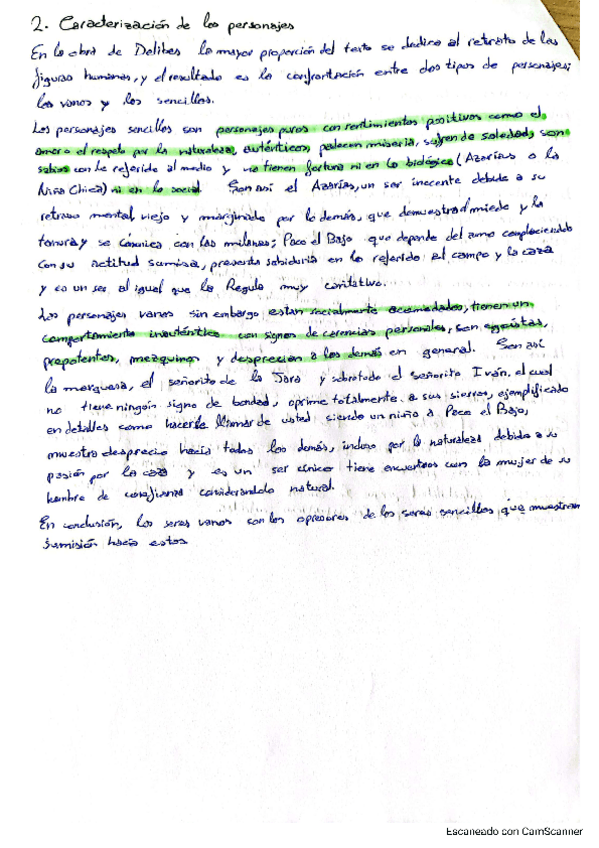 2. Caracterización de los personajes
En la obra de Delibes la mayor proporción del texto se dedica al retrato de las
figuras humanas, y el resultado es la confrontación entre dos tipos de personajes;
los vanos y los sencillos.
Los personajes sencillos son personajes puros con sentimientos positivos como el
amor o el respeto por la naturaleza, auténticos, padecen miseria, sufren de soledad, son
sabios con lo referido al medio y no tienen fortuna ni en lo biológico (Azarías o la
Niña Chica) ni en lo social. Son así el Azarías, un ser inocente debido a su
retraso mental, viejo y marginado por lo demás, que demuestra miedo y la
tonura y se comunica con las milanas; Paco el Bajo que depende del amo complaciendo
con su actitud sumisa, presenta sabiduría en lo referido al campo y la caza
y es un ser al igual que la Regula muy caritativo.
Los personajes vanos sin embargo estan socialmente acomodados, tienen un
comportamiento inauténtico con signos de carencias personales, son egoístas,
prepotentes, mezquinos y desprecian a los demás en general. Son así
la marquesa, el señorito de la Jara y sobretodo el señorito Iván, el cual
no tiene ningún signo de bondad, oprime totalmente a sus siervos, ejemplificado
en detalles como hacerle llamar de usted siendo un niño a Paco el Bajo,
muestra desprecio hacia todos los demás, incluso por la naturaleza debido a su
pasión por la caza y es un ser cínico tiene encuentros con la mujer de su
hombre de confianza considerandolo natural.
En conclusión, los seres vanos son los opresores de los seres sencillos que muestran
sumisión hacia estos
Escaneado con CamScanner